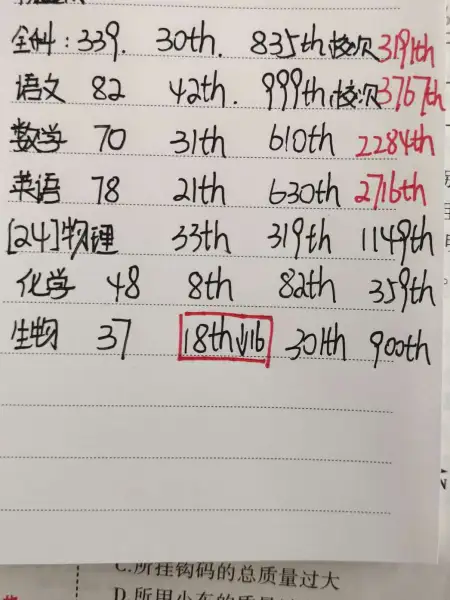 全科:339. 30th. 835th校次3191th
语文 82 42th. 999th校次3767th
数学 70 31th 610th 2284th
英语 78 21th 630th 2716th
[24]物理 33th 319th 1149th
化学 48 8th 82th 359th
生物 37 18th↓16 301th 900th
C.所挂钩码的总质量过大
D.所用小车的质量